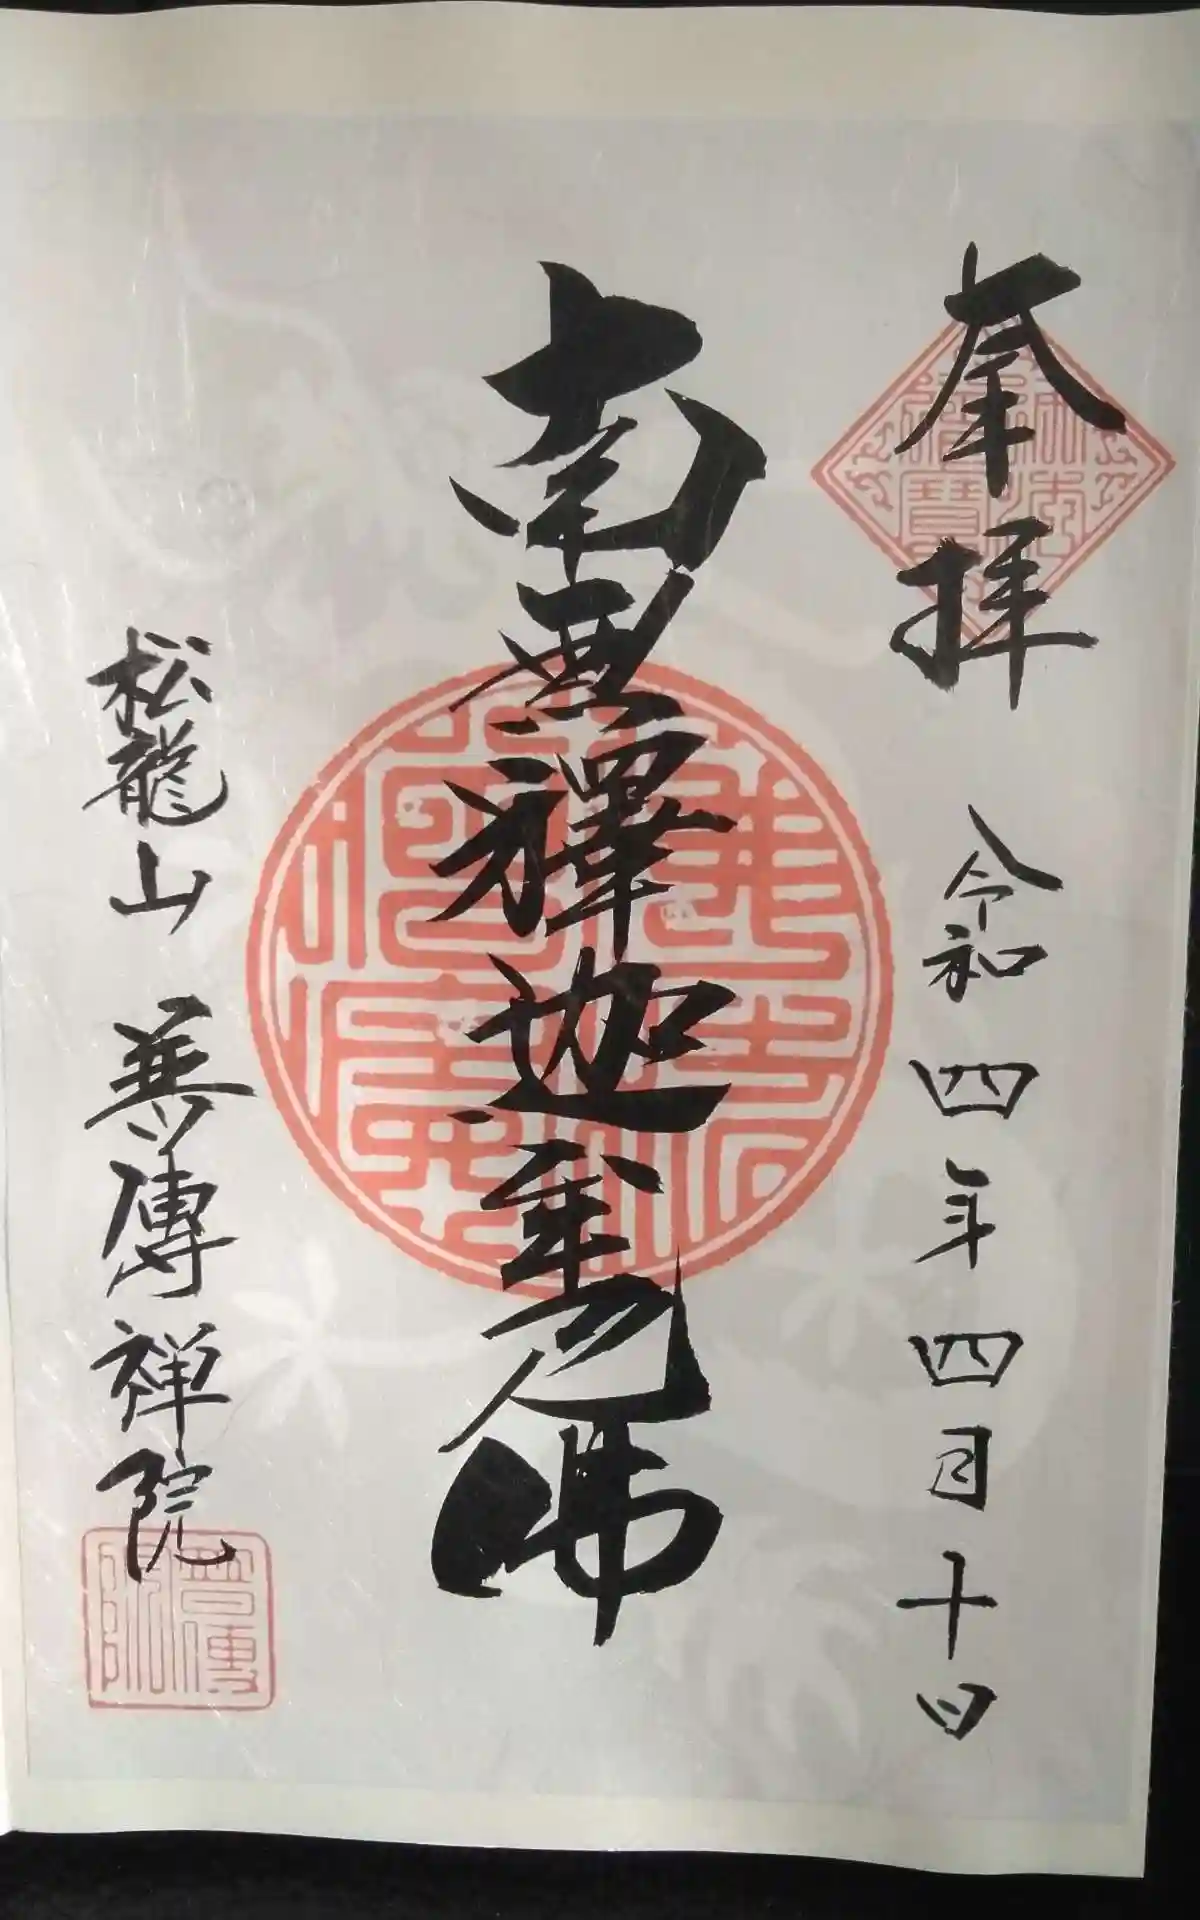 奉拝
令和四年四月十日
南無釋迦牟尼佛
松龍山 善傳禅院